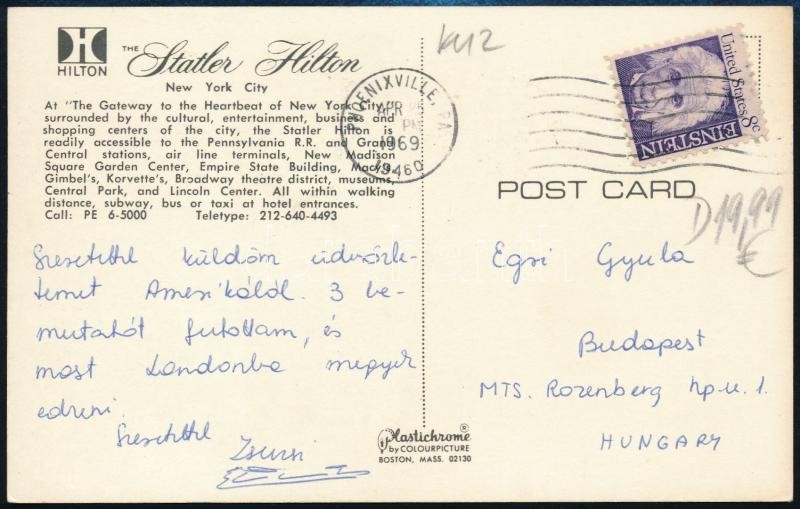 HILTON
THE Statler Hilton
New York City
At "The Gateway to the Heartbeat of New York City",
surrounded by the cultural, entertainment, business and
shopping centers of the city, the Statler Hilton is
readily accessible to the Pennsylvania R.R. and Grand
Central stations, air line terminals, New Madison
Square Garden Center, Empire State Building, Macy's,
Gimbel's, Korvette's, Broadway theatre district, museums,
Central Park, and Lincoln Center. All within walking
distance, subway, bus or taxi at hotel entrances.
Call: PE 6-5000 Teletype: 212-640-4493
Szeretettel küldöm üdvözle-
temet Amerikából. 3 be-
mutatót futottam, és
most Londonba megyek
edzeni.
Szeretettel
Zsuzsi
PHOENIXVILLE, PA.
APR
PM
1969
19460
United States 8c
EINSTEIN
POST CARD
D 19,99
€
Egri Gyula
Budapest
MTS. Rozenberg hp. u. 1.
HUNGARY
Plastichrome®
by COLOURPICTURE
BOSTON, MASS. 02130